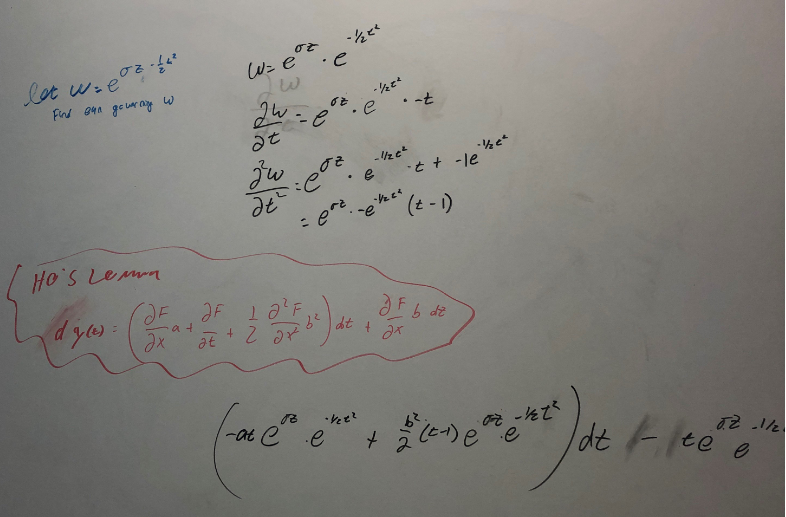 let w = e^{σz - ½t²}
Find eqn governing w
w = e^{σz} · e^{-1/2t²}
∂w/∂t = e^{σz} · e^{-1/2t²} · -t
∂²w/∂t² = e^{σz} · e^{-1/2t²} · t + -1e^{-1/2t²}
= e^{σz} · -e^{-1/2t²} (t-1)
Ito's Lemma
d y(t) = (∂F/∂x a + ∂F/∂t + 1/2 ∂²F/∂x² b²) dt + ∂F/∂x b dz
(-at e^{σz} · e^{-1/2t²} + b²/2 (t-1) e^{σz} · e^{-1/2t²}) dt - t e^{σz} e^{-1/2